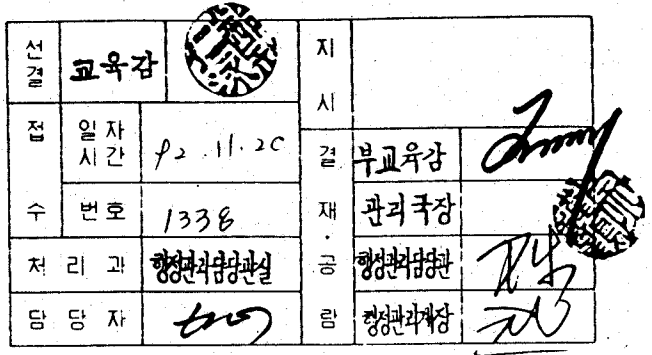 선결 교육감 지시
접수 일자시간 92.11.20 결재·공람 부교육감
번호 1338 관리국장
처리과 행정관리담당관실 행정관리담당관
담당자 행정관리계장